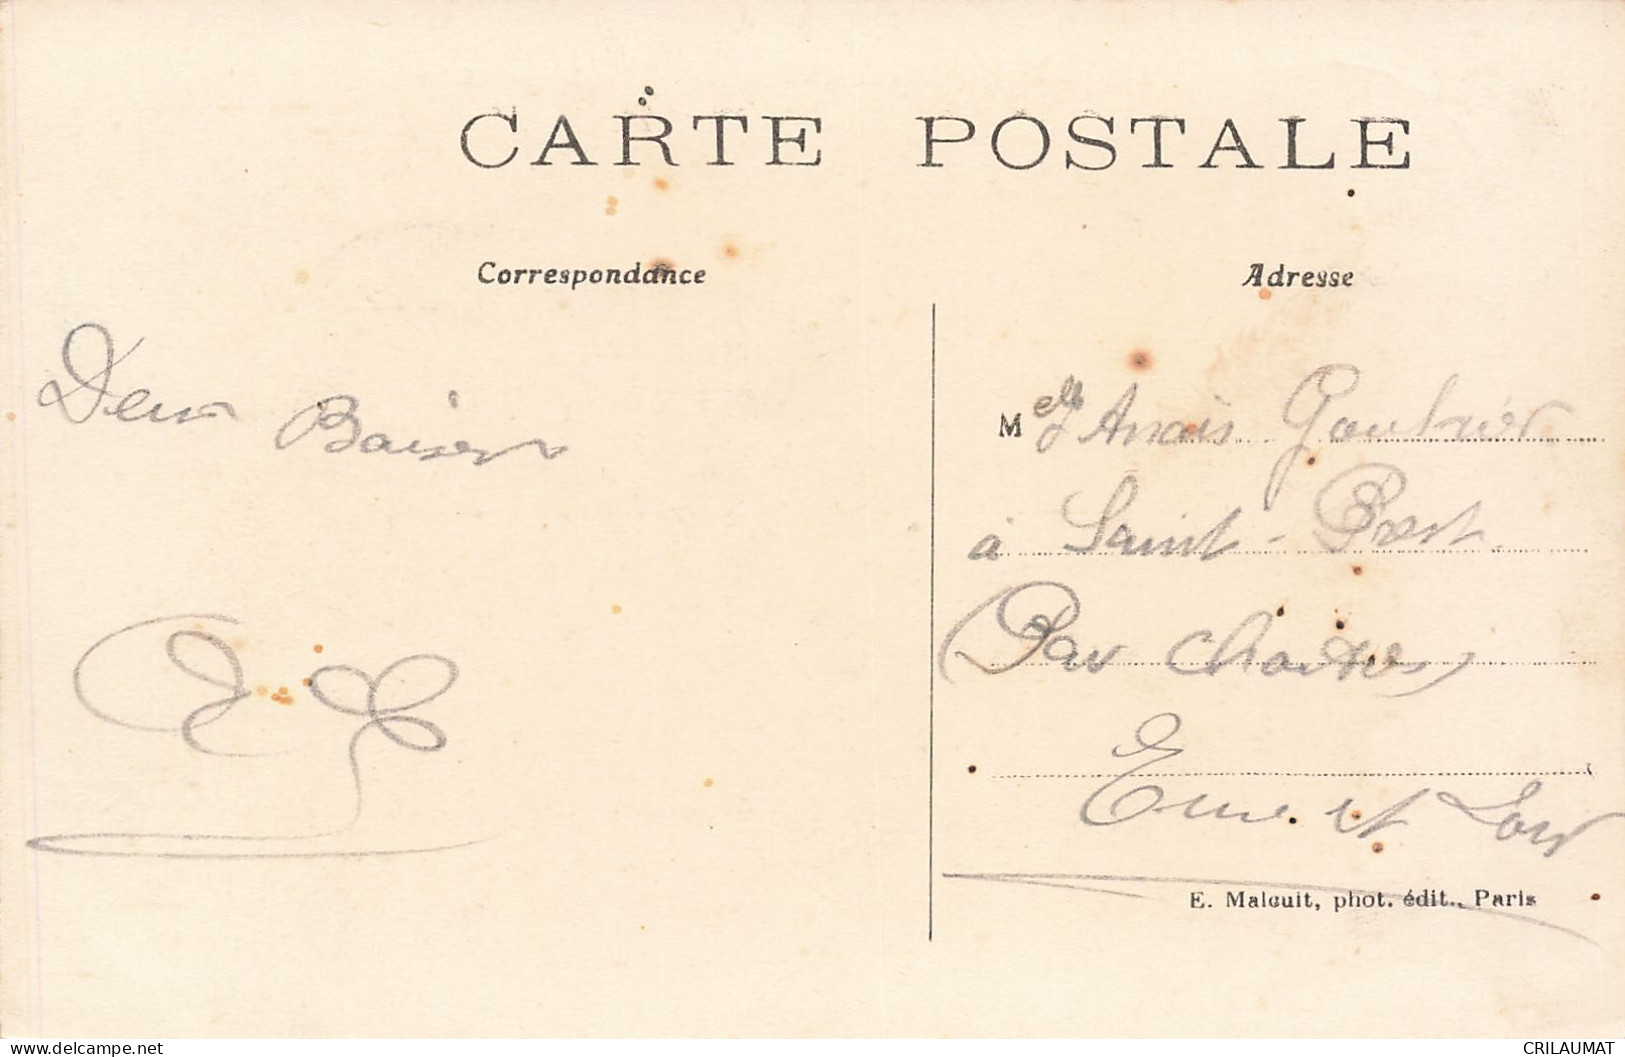 CARTE POSTALE
Correspondance
Adresse
Deux Baisers
Melle Anaïs Gautier
à Saint-Prest
(Par Chartres)
Eure et Loir
E. Malcuit, phot. édit., Paris
delcampe.net
CRILAUMAT